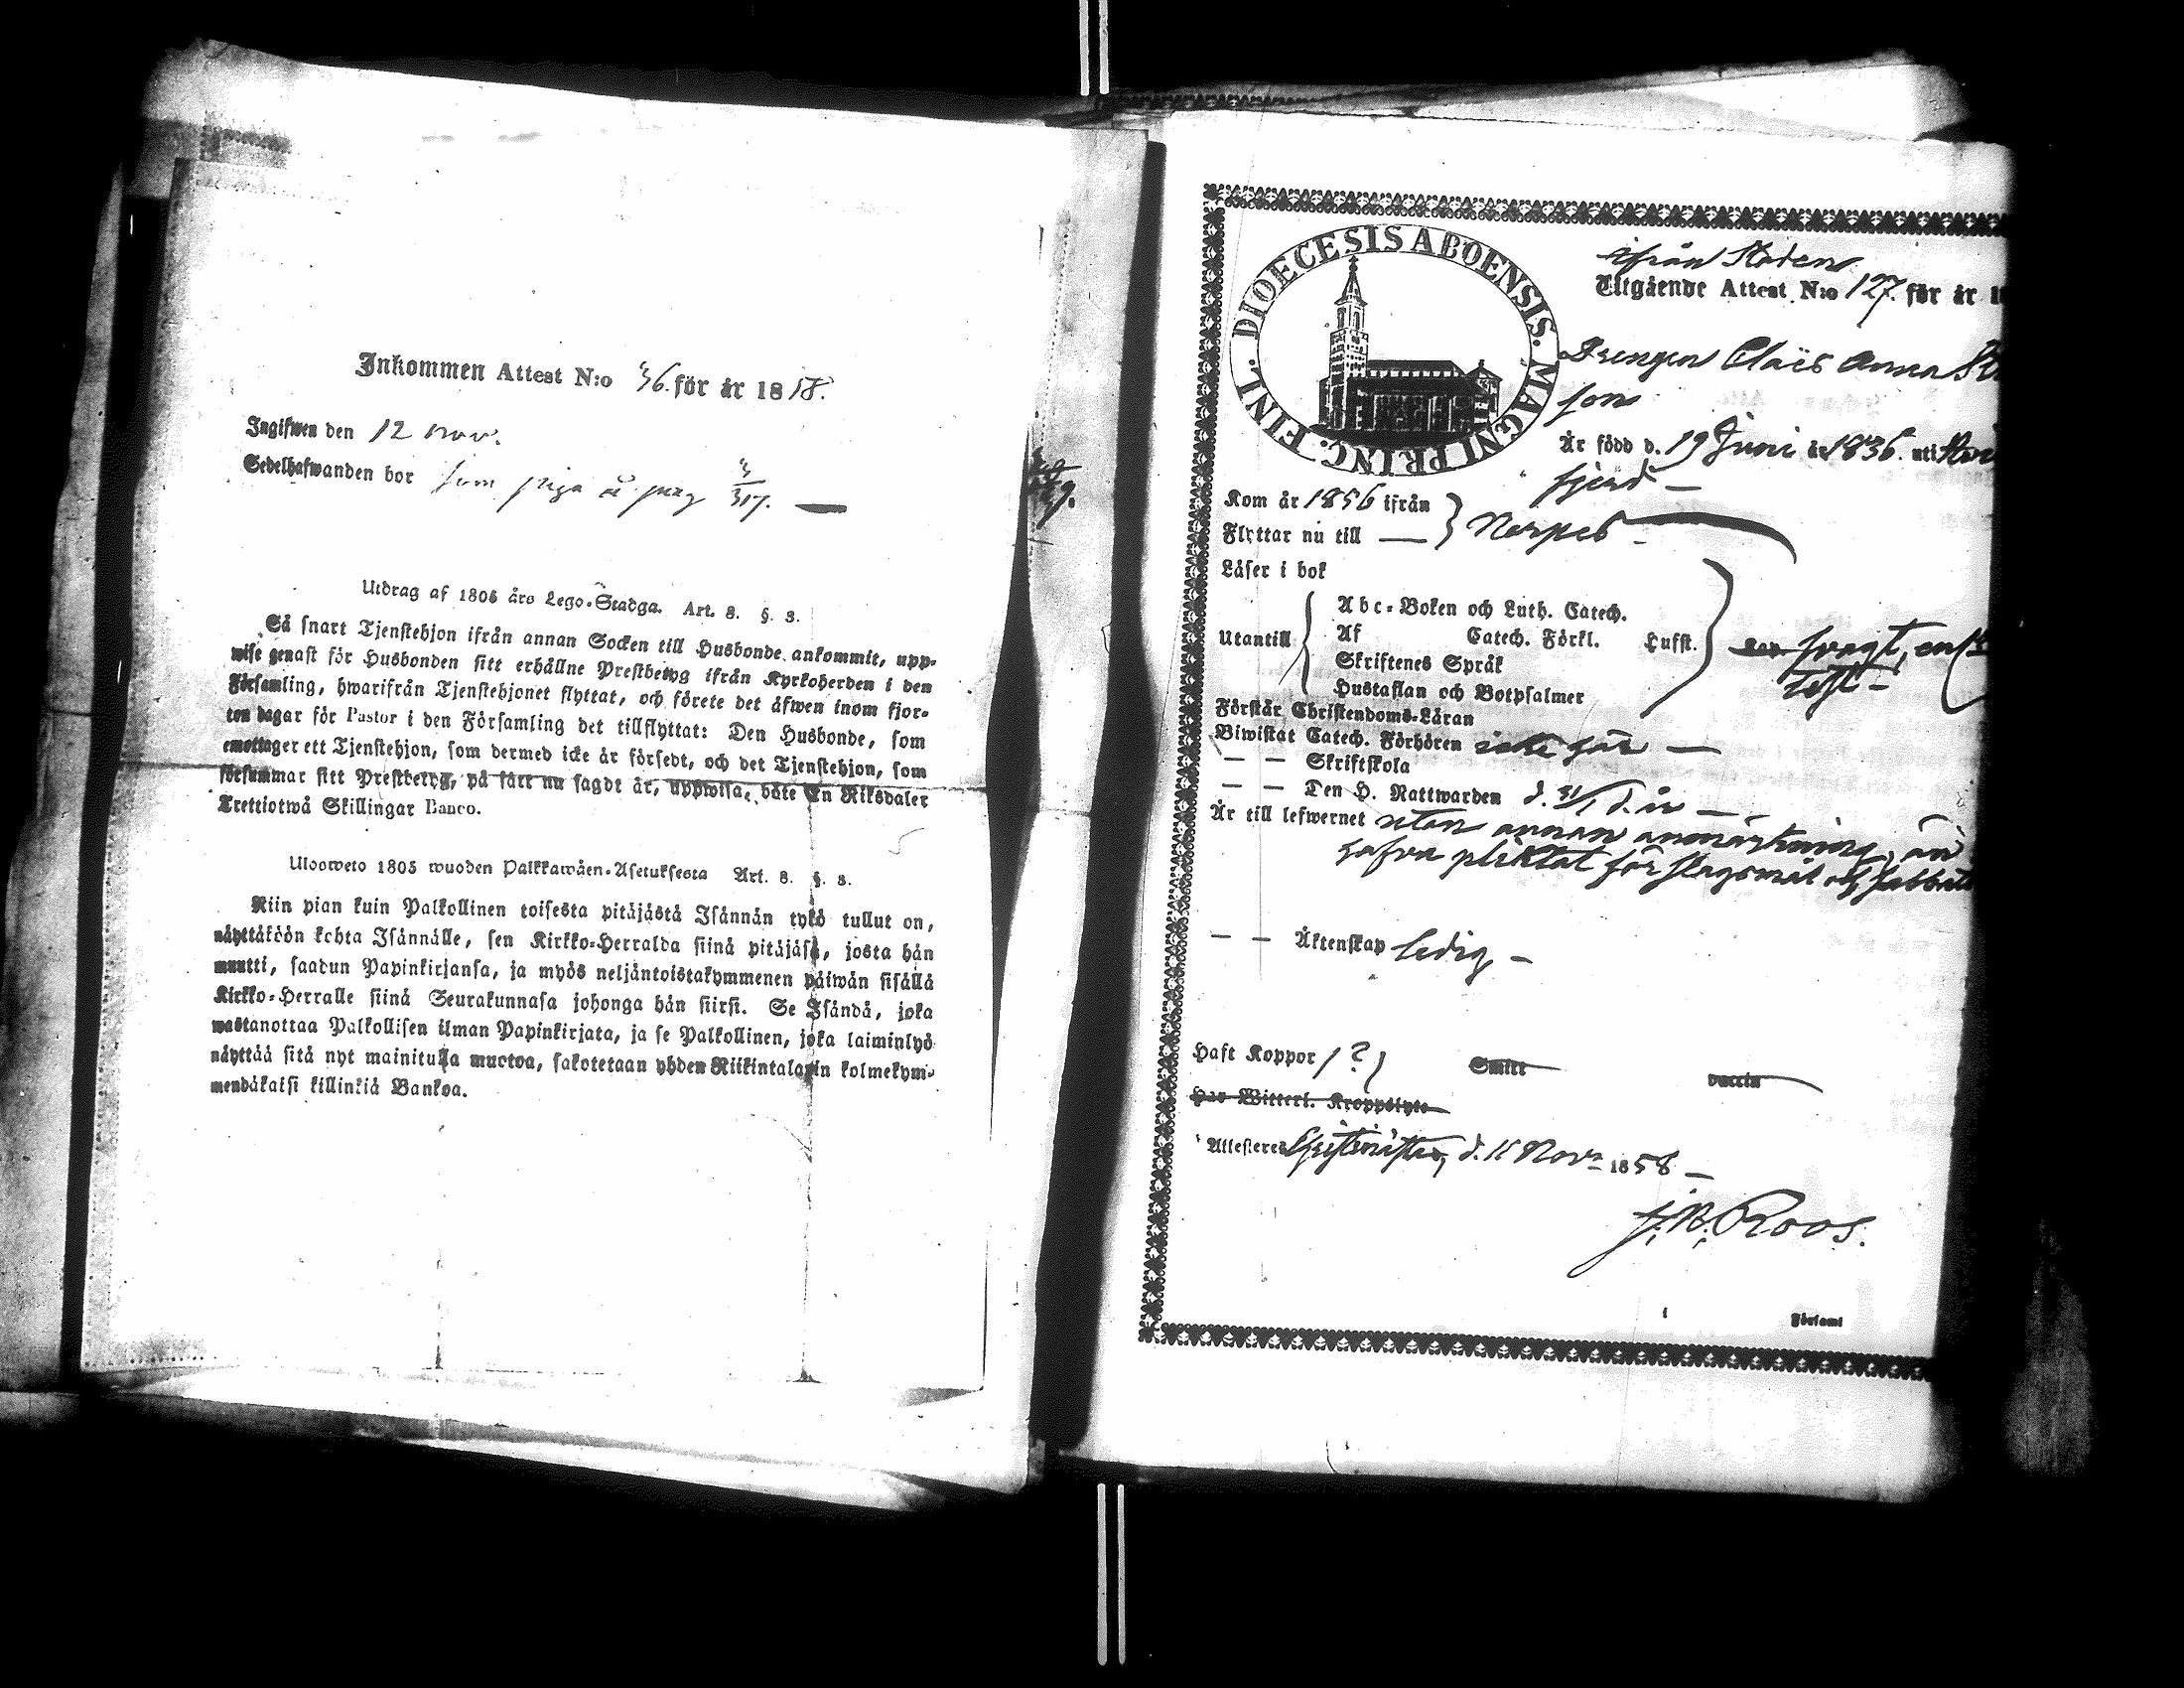 Inkommen Attest N:o 36. för år 1858.
Ingifwen den 12 nov.
Sedelhafwanden bor som piga å pag 3/317.
Utdrag af 1805 års Lego-Stadga. Art. 8. §. 3.
Så snart Tjenstehjon ifrån annan Socken till Husbonde ankommit, upp-
wise genast för Husbonden sitt erhållne Prestbetyg ifrån Kyrkoherden i den
Församling, hwarifrån Tjenstehjonet flyttat, och förete det äfwen inom fjor-
ton dagar för Pastor i den Församling det tillflyttat: Den Husbonde, som
emottager ett Tjenstehjon, som dermed icke är försedt, och det Tjenstehjon, som
försummar sitt Prestbetyg, på sätt nu sagdt är, uppwisa, böte En Riksdaler
Trettiotwå Skillingar Banco.
Ulosweto 1805 wuoden Palkkawäen-Asetuksesta Art. 8. §. 3.
Niin pian kuin Palkollinen toisesta pitäjästä Isännän tykö tullut on,
näyttäköön kohta Isännälle, sen Kirkko-Herralda siinä pitäjäsä, josta hän
muutti, saadun Papinkirjansa, ja myös neljäntoistakymmenen päiwän sisällä
Kirkko-Herralle siinä Seurakunnasa johonga hän siirsi. Se Isändä, joka
wastanottaa Palkollisen ilman Papinkirjata, ja se Palkollinen, joka laiminlyö
näyttää sitä nyt mainitulla muotoa, sakotetaan yhden Riikintalarin kolmekym-
mendäkaksi killinkiä Bankoa.
DIOECESIS ABOENSIS. MAGNI PRINC. FINL.
ifrån Staden
Utgående Attest N:o 127. för år 1
Drengen Claës Anna
son
Är född d. 19 Juni år 1836. uti
fjerd
Kom år 1856 ifrån
Flyttar nu till — Nerpes
Läser i bok
Utantill
Abc-Boken och Luth. Catech.
Af Catech. Förkl. Hufst.
Skriftenes Språk
Hustaflan och Botpsalmer
svagt,
Förstår Christendoms-Läran
Biwistat Catech. Förhören icke här —
— — Skriftskola
— — Den H. Nattwarden d. 31/1 d. år —
Är till lefwernet utan annan anmärkning, än
hafva pliktat för slagsmål och sabbats
— — Äktenskap ledig —
Haft Koppor (?) Smitt vaccin
Har Witterl. Kroppslyte
Attesteres Christinestad, d. 11 Nov. 1858 —
J. N. Roos.
i Församl